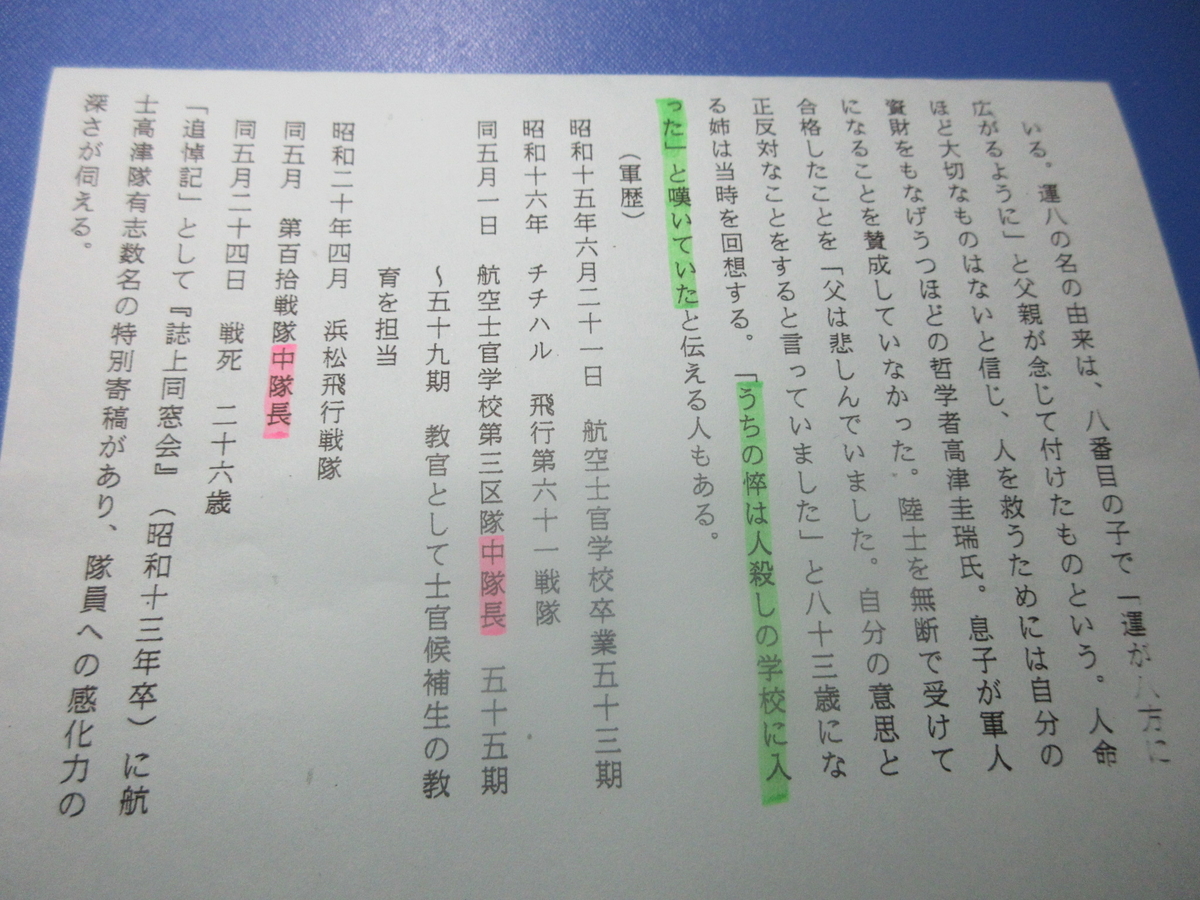 いる。運八の名の由来は、八番目の子で「運が八方に
広がるように」と父親が念じて付けたものという。人命
ほど大切なものはないと信じ、人を救うためには自分の
資財をもなげうつほどの哲学者高津圭瑞氏。息子が軍人
になることを賛成していなかった。陸士を無断で受けて
合格したことを「父は悲しんでいました。自分の意思と
正反対なことをすると言っていました」と八十三歳にな
る姉は当時を回想する。「うちの倅は人殺しの学校に入
った」と嘆いていたと伝える人もある。
(軍歴)
昭和十五年六月二十一日 航空士官学校卒業五十三期
昭和十六年 チチハル 飛行第六十一戦隊
同五月一日 航空士官学校第三区隊中隊長 五十五期
~五十九期 教官として士官候補生の教
育を担当
昭和二十年四月 浜松飛行戦隊
同五月 第百拾戦隊中隊長
同五月二十四日 戦死 二十六歳
「追悼記」として『誌上同窓会』(昭和十三年卒)に航
士高津隊有志数名の特別寄稿があり、隊員への感化力の
深さが伺える。